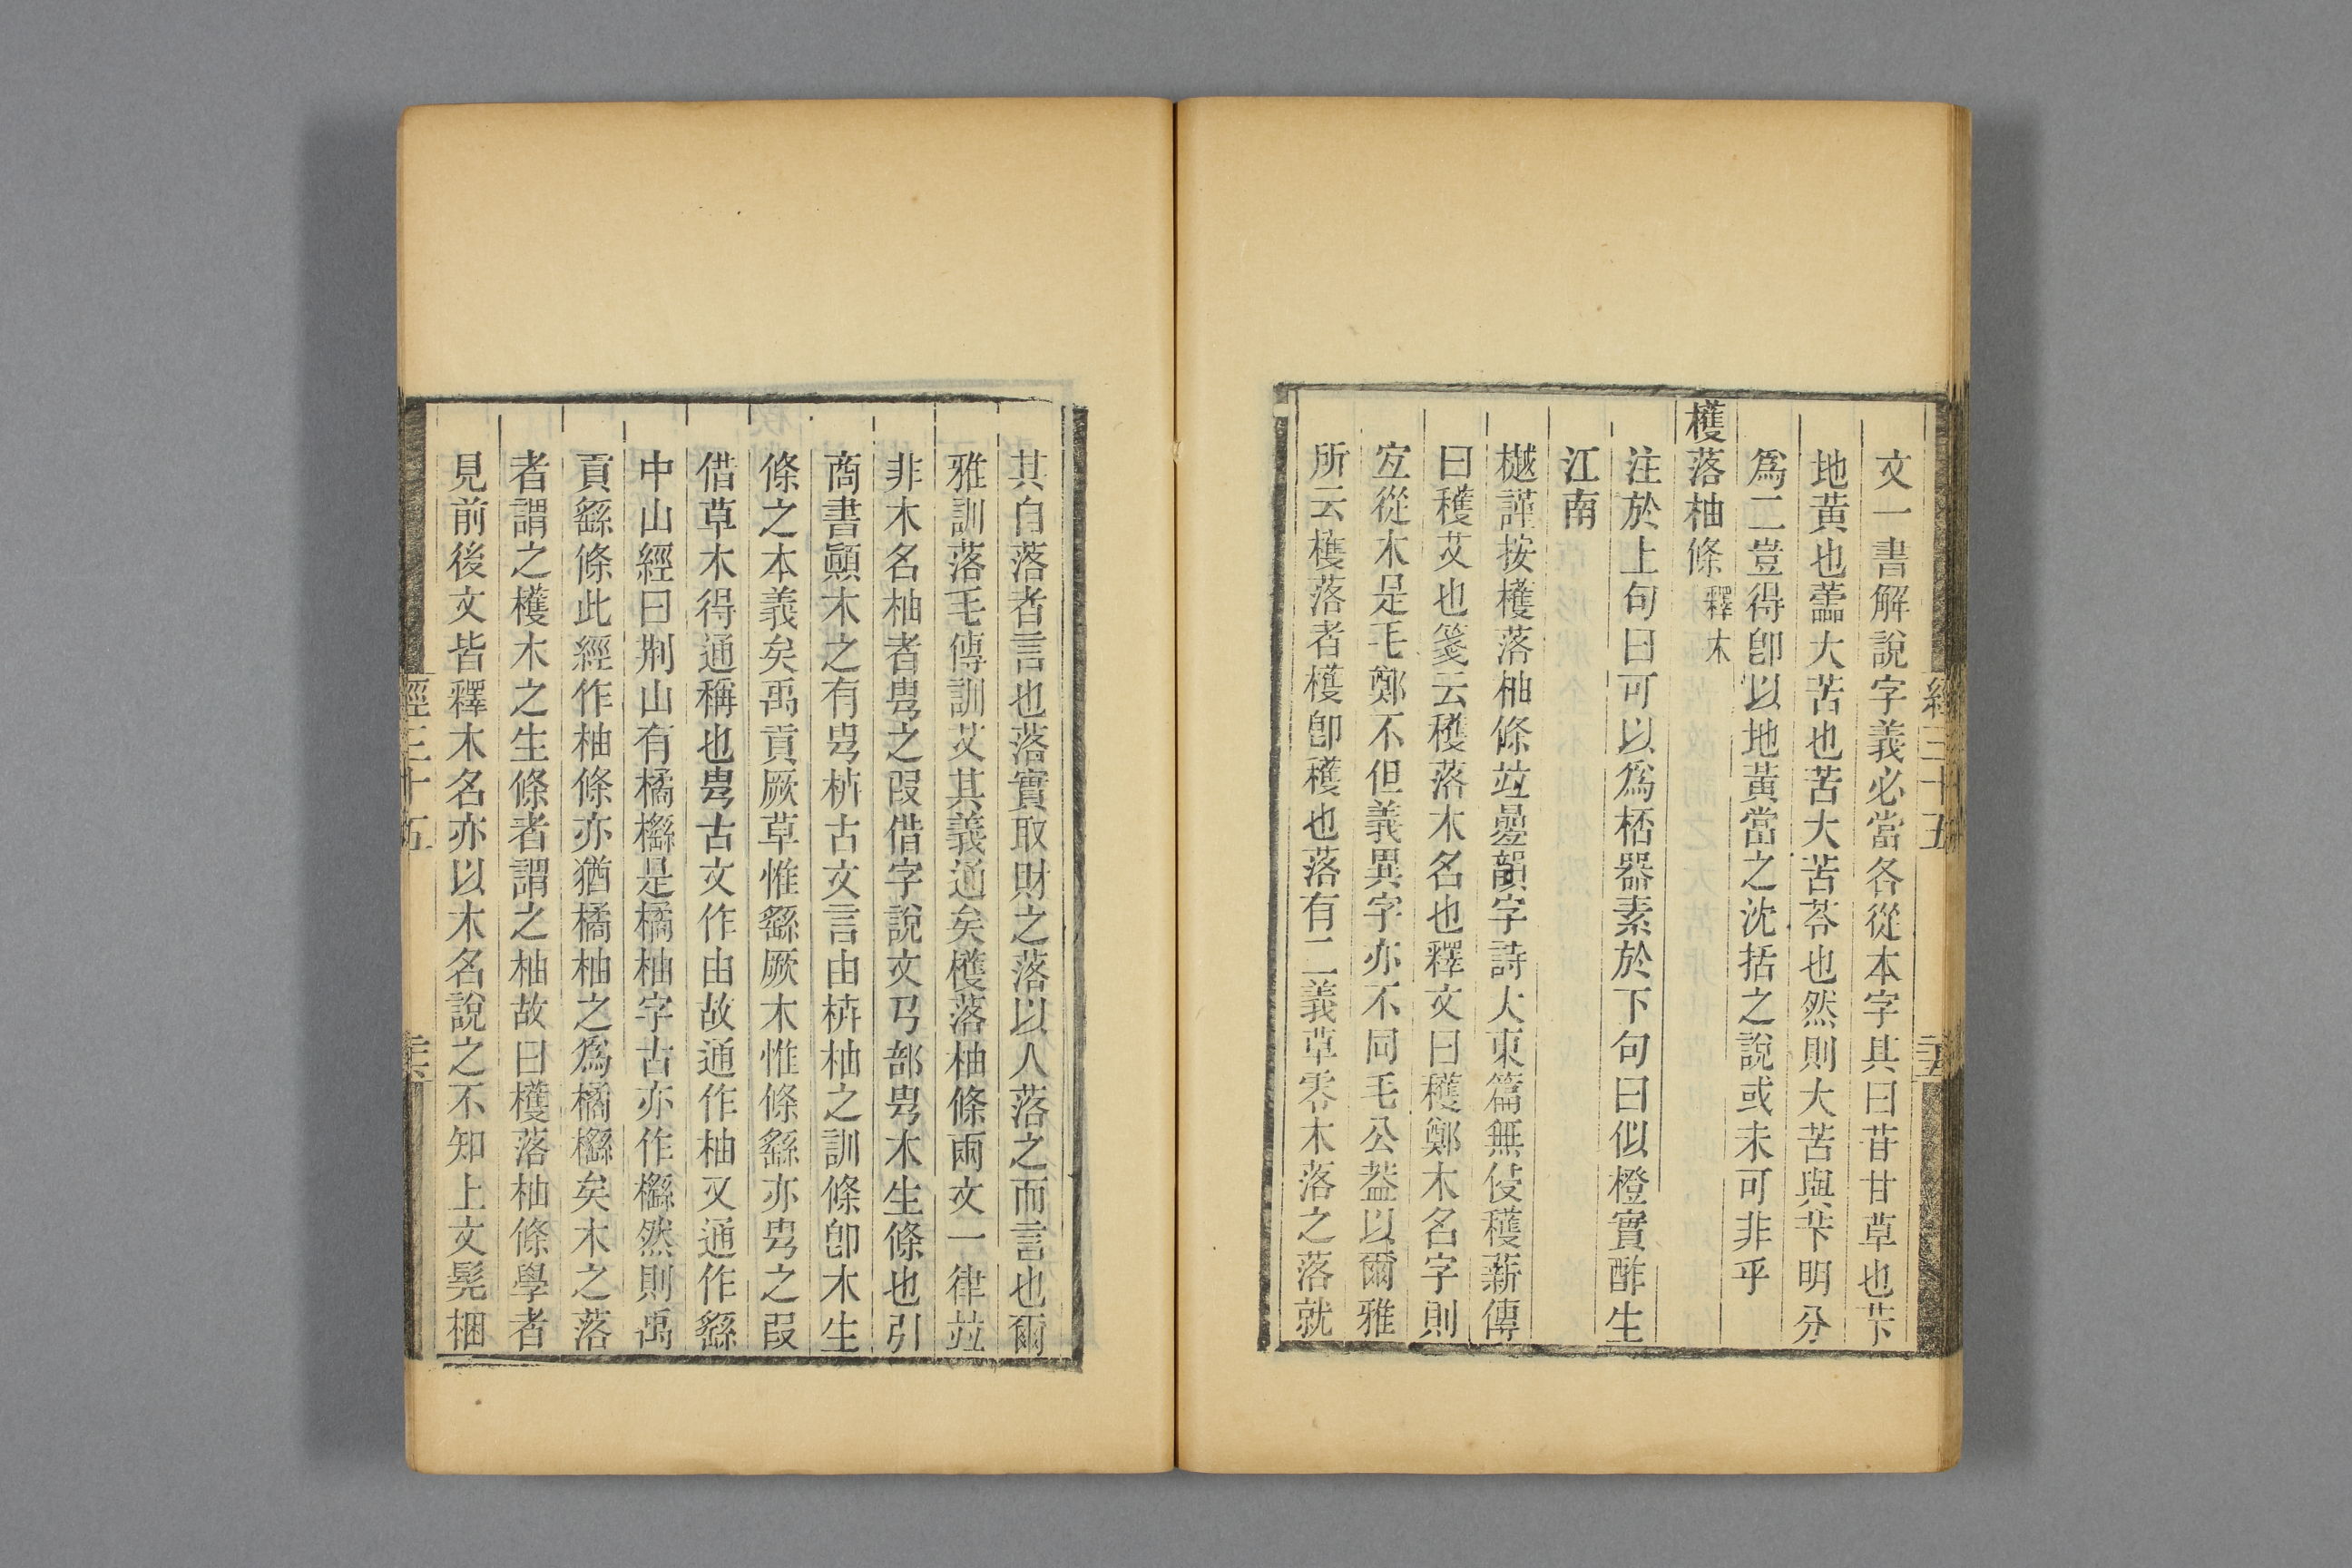 文一書解說字義必當各從本字其曰苷甘草也芐
地黃也蘦大苦也苦大苦苓也然則大苦與芐明分
爲二豈得卽以地黃當之沈括之說或未可非乎
檴落柚條釋木
注於上句曰可以爲桮器素於下句曰似橙實酢生
江南
樾謹按檴落柚條竝曡韻字詩大東篇無侵穫薪傳
曰穫艾也箋云穫落木名也釋文曰穫鄭木名字則
宜從木是毛鄭不但義異字亦不同毛公葢以爾雅
所云檴落者檴卽穫也落有二義草零木落之落就
其自落者言也落實取財之落以人落之而言也爾
雅訓落毛傳訓艾其義通矣檴落柚條兩文一律竝
非木名柚者甹之叚借字說文丂部甹木生條也引
商書顚木之有甹枿古文言由枿柚之訓條卽木生
條之本義矣禹貢厥草惟繇厥木惟條繇亦甹之叚
借草木得通稱也甹古文作由故通作柚又通作繇
中山經曰荆山有橘櫾是橘柚字古亦作櫾然則禹
貢繇條此經作柚條亦猶橘柚之爲橘櫾矣木之落
者謂之檴木之生條者謂之柚故曰檴落柚條學者
見前後文皆釋木名亦以木名說之不知上文髡梱
經三十五
經三十五